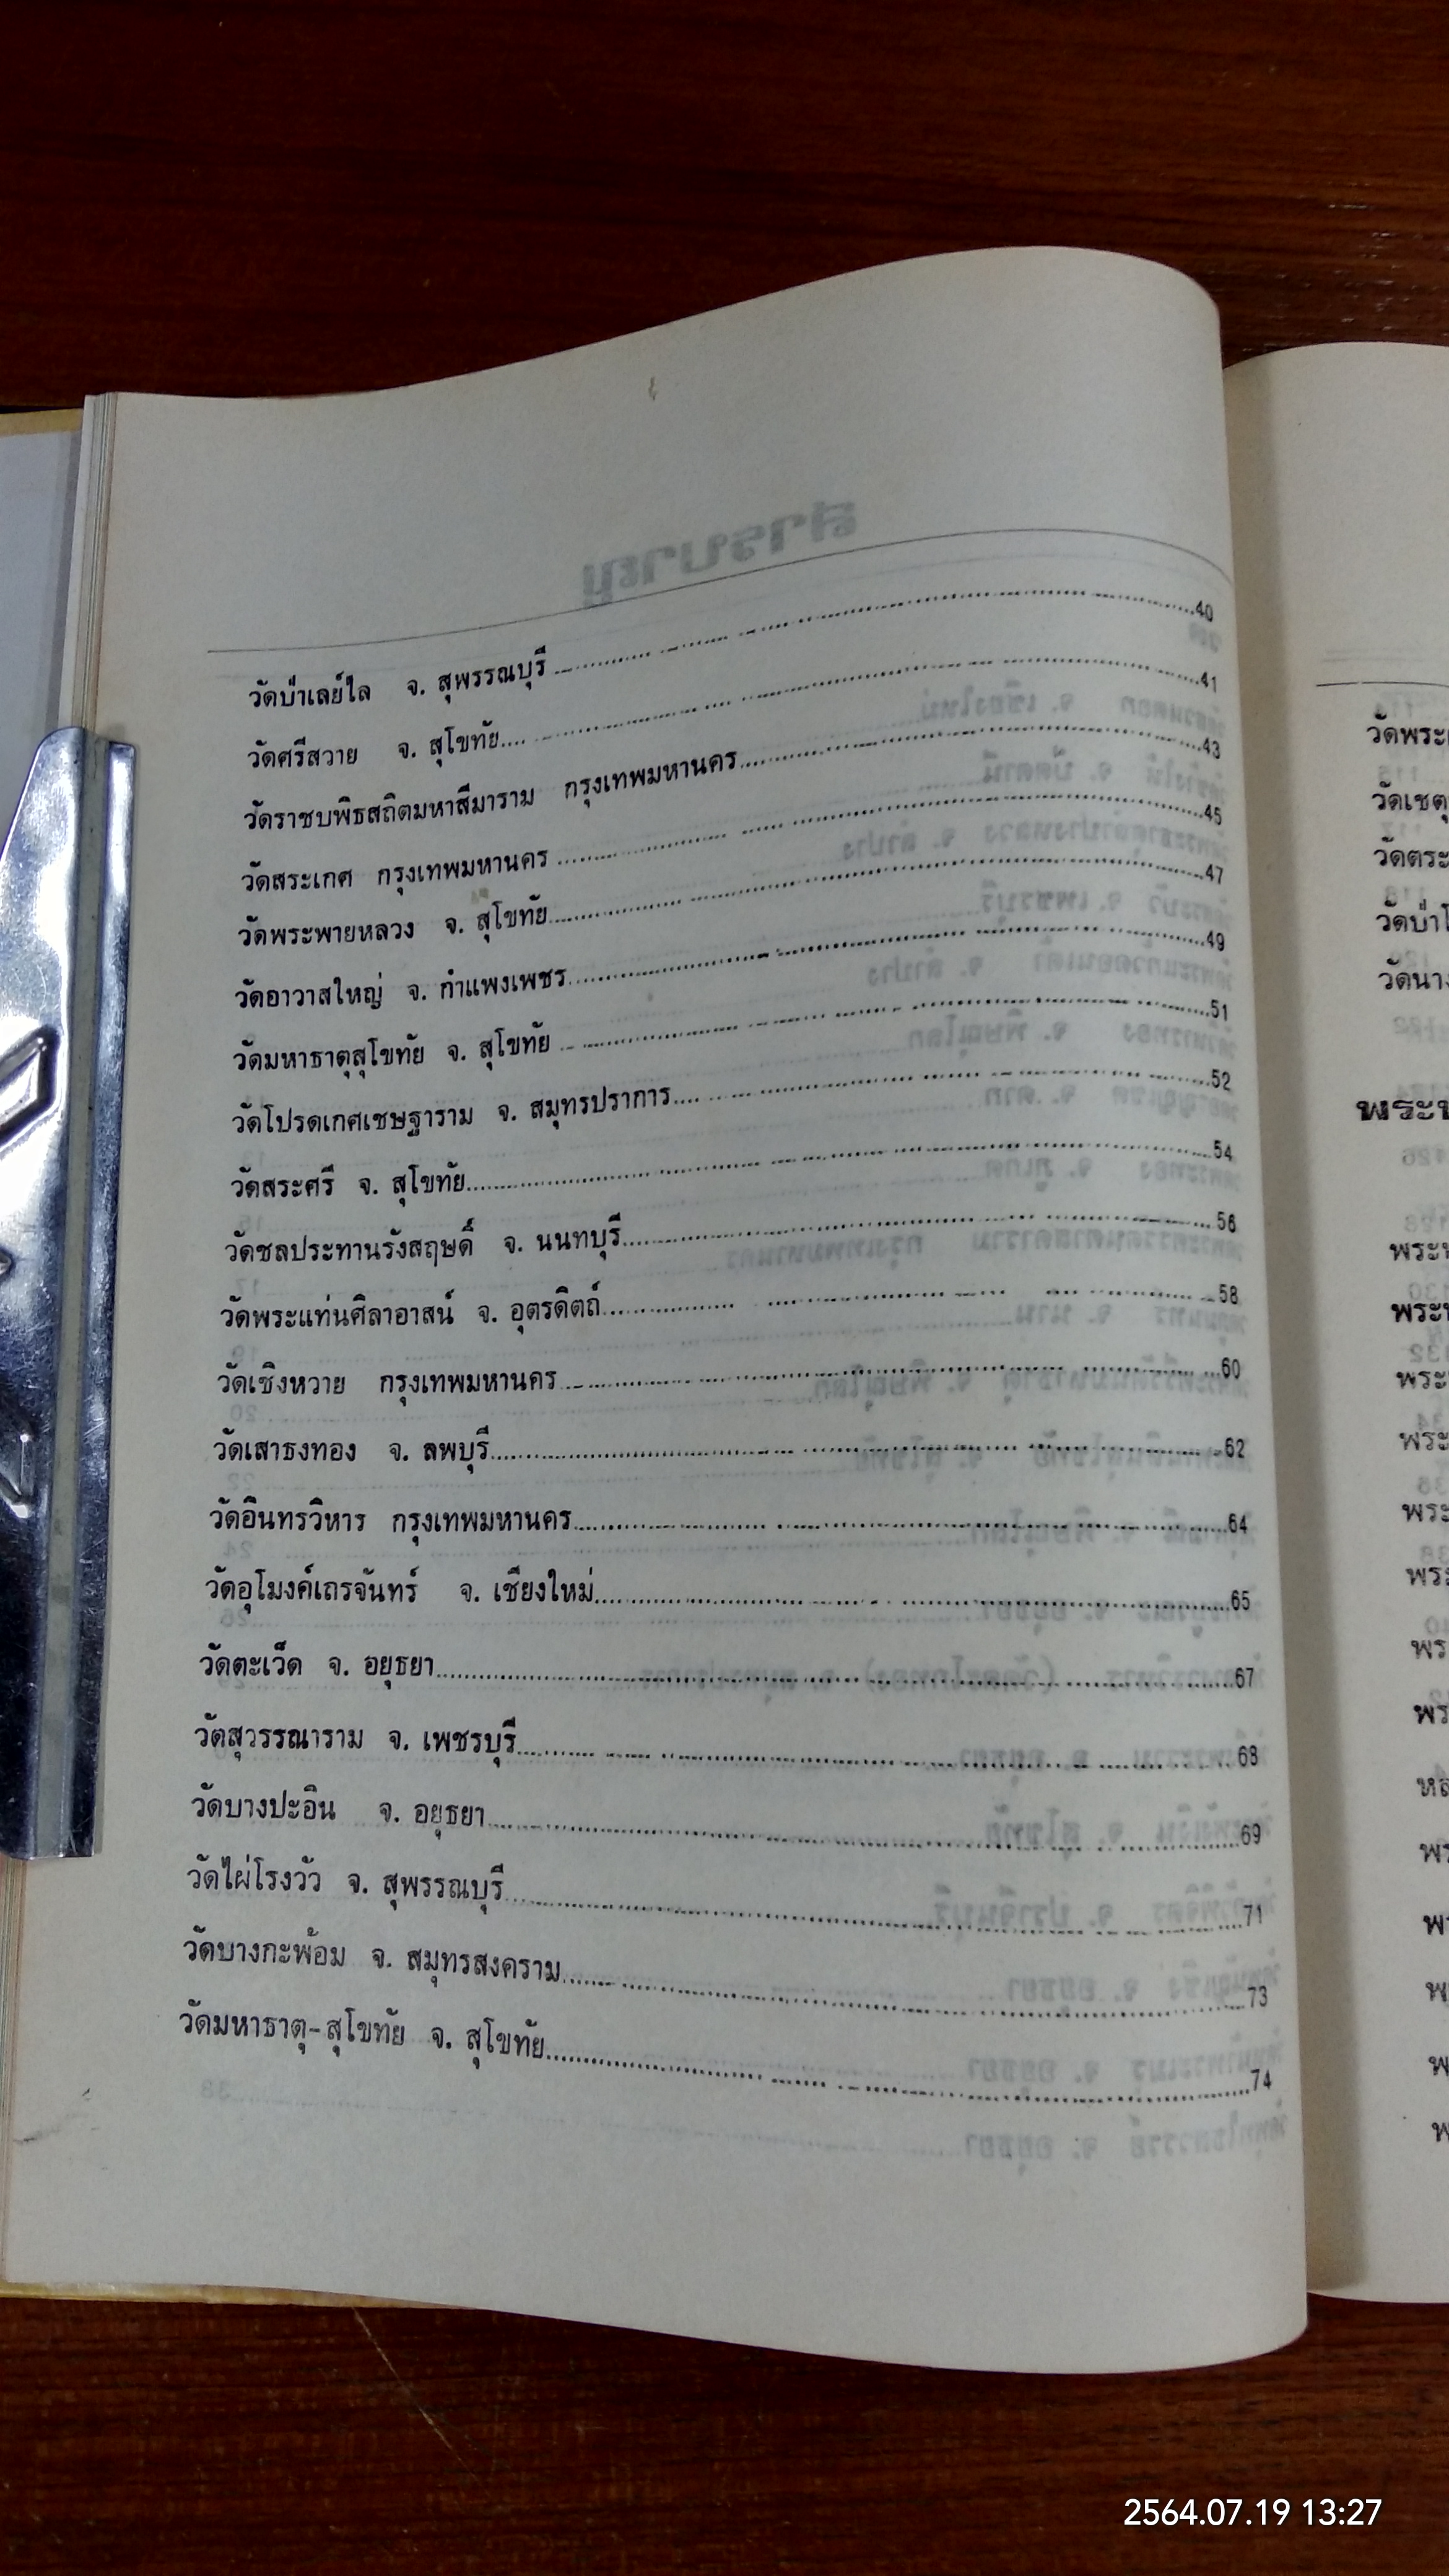 วัดป่าเลย์ไล จ. สุพรรณบุรี 40
วัดศรีสวาย จ. สุโขทัย 41
วัดราชบพิธสถิตมหาสีมาราม กรุงเทพมหานคร 43
วัดสระเกศ กรุงเทพมหานคร 45
วัดพระพายหลวง จ. สุโขทัย 47
วัดอาวาสใหญ่ จ. กำแพงเพชร 49
วัดมหาธาตุสุโขทัย จ. สุโขทัย 51
วัดโปรดเกศเชษฐาราม จ. สมุทรปราการ 52
วัดสระศรี จ. สุโขทัย 54
วัดชลประทานรังสฤษดิ์ จ. นนทบุรี 56
วัดพระแท่นศิลาอาสน์ จ. อุตรดิตถ์ 58
วัดเชิงหวาย กรุงเทพมหานคร 60
วัดเสาธงทอง จ. ลพบุรี 62
วัดอินทรวิหาร กรุงเทพมหานคร 64
วัดอุโมงค์เถรจันทร์ จ. เชียงใหม่ 65
วัดตะเว็ด จ. อยุธยา 67
วัตสุวรรณาราม จ. เพชรบุรี 68
วัดบางปะอิน จ. อยุธยา 69
วัดไผ่โรงวัว จ. สุพรรณบุรี 71
วัดบางกะพ้อม จ. สมุทรสงคราม 73
วัดมหาธาตุ-สุโขทัย จ. สุโขทัย 74
2564.07.19 13:27